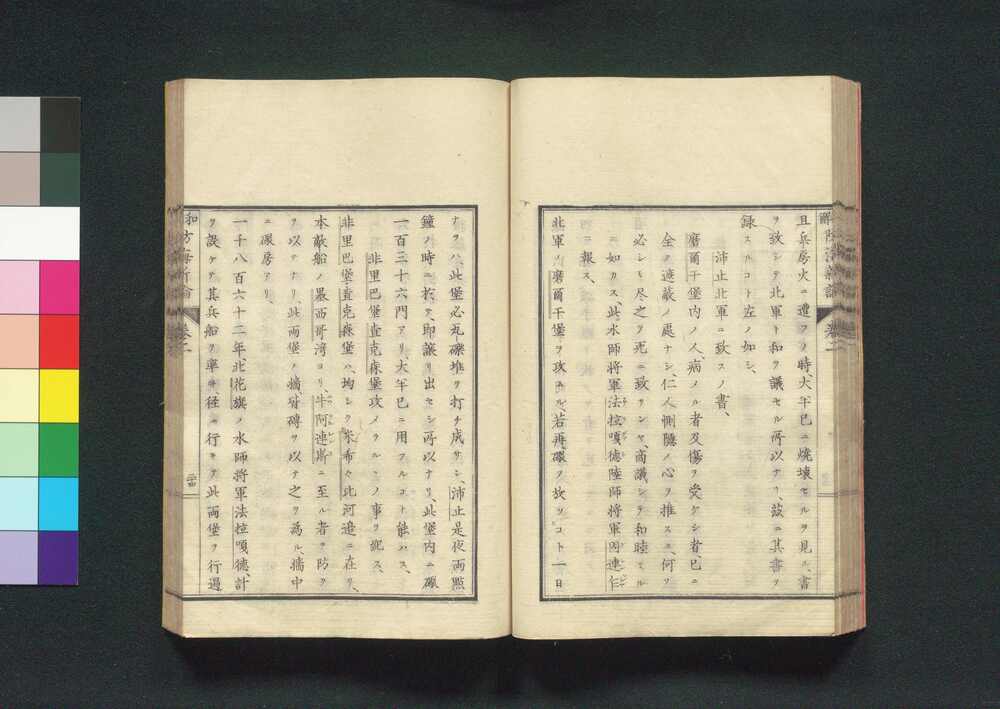 且兵房火ニ遭フノ時、大半已ニ燒壊セルヲ見ル、書
ヲ致シテ北軍ト和ヲ議セル所以ナリ、茲ニ其書ヲ
録スルコト左ノ如シ、
沛止北軍ニ致スノ書、
磨爾干堡内ノ人、病メル者及傷ヲ受ケシ者、已ニ
全ク遮蔽ノ處ナシ、仁人惻隱ノ心ヲ推スニ、何ソ
必シモ尽之ヲ死ニ致サンヤ、商議シテ和睦スル
ニ如カス、此水師將軍法拉嗅德陸師將軍因連仁
ニ報ス、
北軍ノ磨爾干堡ヲ攻ムル、若再礟ヲ放ツコト一日
ナラハ、此堡必瓦礫堆ヲ打チ成サン、沛止是夜両點
鐘ノ時ニ於テ、即讓リ出セシ所以ナリ、此堡内ニ礟
一百三十六門アリ、大半已ニ用フルコト能ハス、
非里巴堡查克森堡攻メラルヽノ事ヲ說ス、
非里巴堡查克森堡ハ、均シク米希西比河邉ニ在リ、
本敵船ノ墨西哥湾ヨリ、牛阿連斯ニ至ル者ヲ防ク
ヲ以テナリ、此両堡ノ墻皆磚ヲ以テ之ヲ為ル、墻中
ニ礟房アリ、
一千八百六十二年、北花旗ノ水師將軍法拉嗅德計
ヲ設ケテ其兵船ヲ率ヰ、径ニ行キテ此両堡ヲ行過
卷二